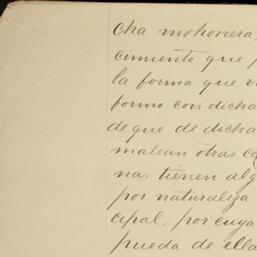 cha mohonera,
cimiento que
la forma que
forma con dicha
de que de dicha
malean otras
nas tienen alg
por naturaleza
cipal, por cuya
pueda de ella